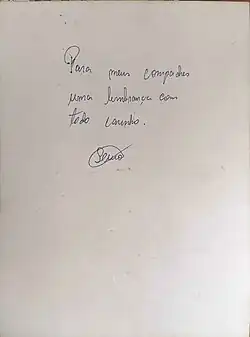 Para meus compadres
uma lembrança com
todo carinho.